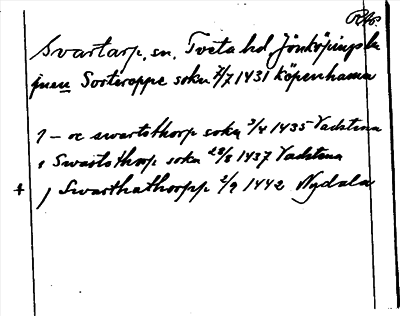 RAp
Svartarp, sn, Tveta hd Jönköpings lä
juxu Sorteroppe sokn 7/7 1431 Köpenhamn
1 - oc swartothorp sokn 3/4 1435 Vadstena
, Swartothorp sokn 28/8 1437 Vadstena
+ / Swarthathorpp 2/9 1442 Nydala